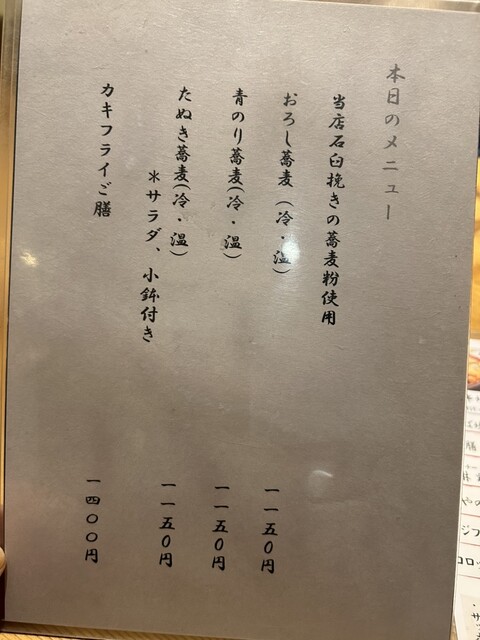 本日のメニュー
当店石臼挽きの蕎麦粉使用
おろし蕎麦(冷・温) 一一五〇円
青のり蕎麦(冷・温) 一一五〇円
たぬき蕎麦(冷・温) 一一五〇円
*サラダ、小鉢付き
カキフライご膳 一四〇〇円